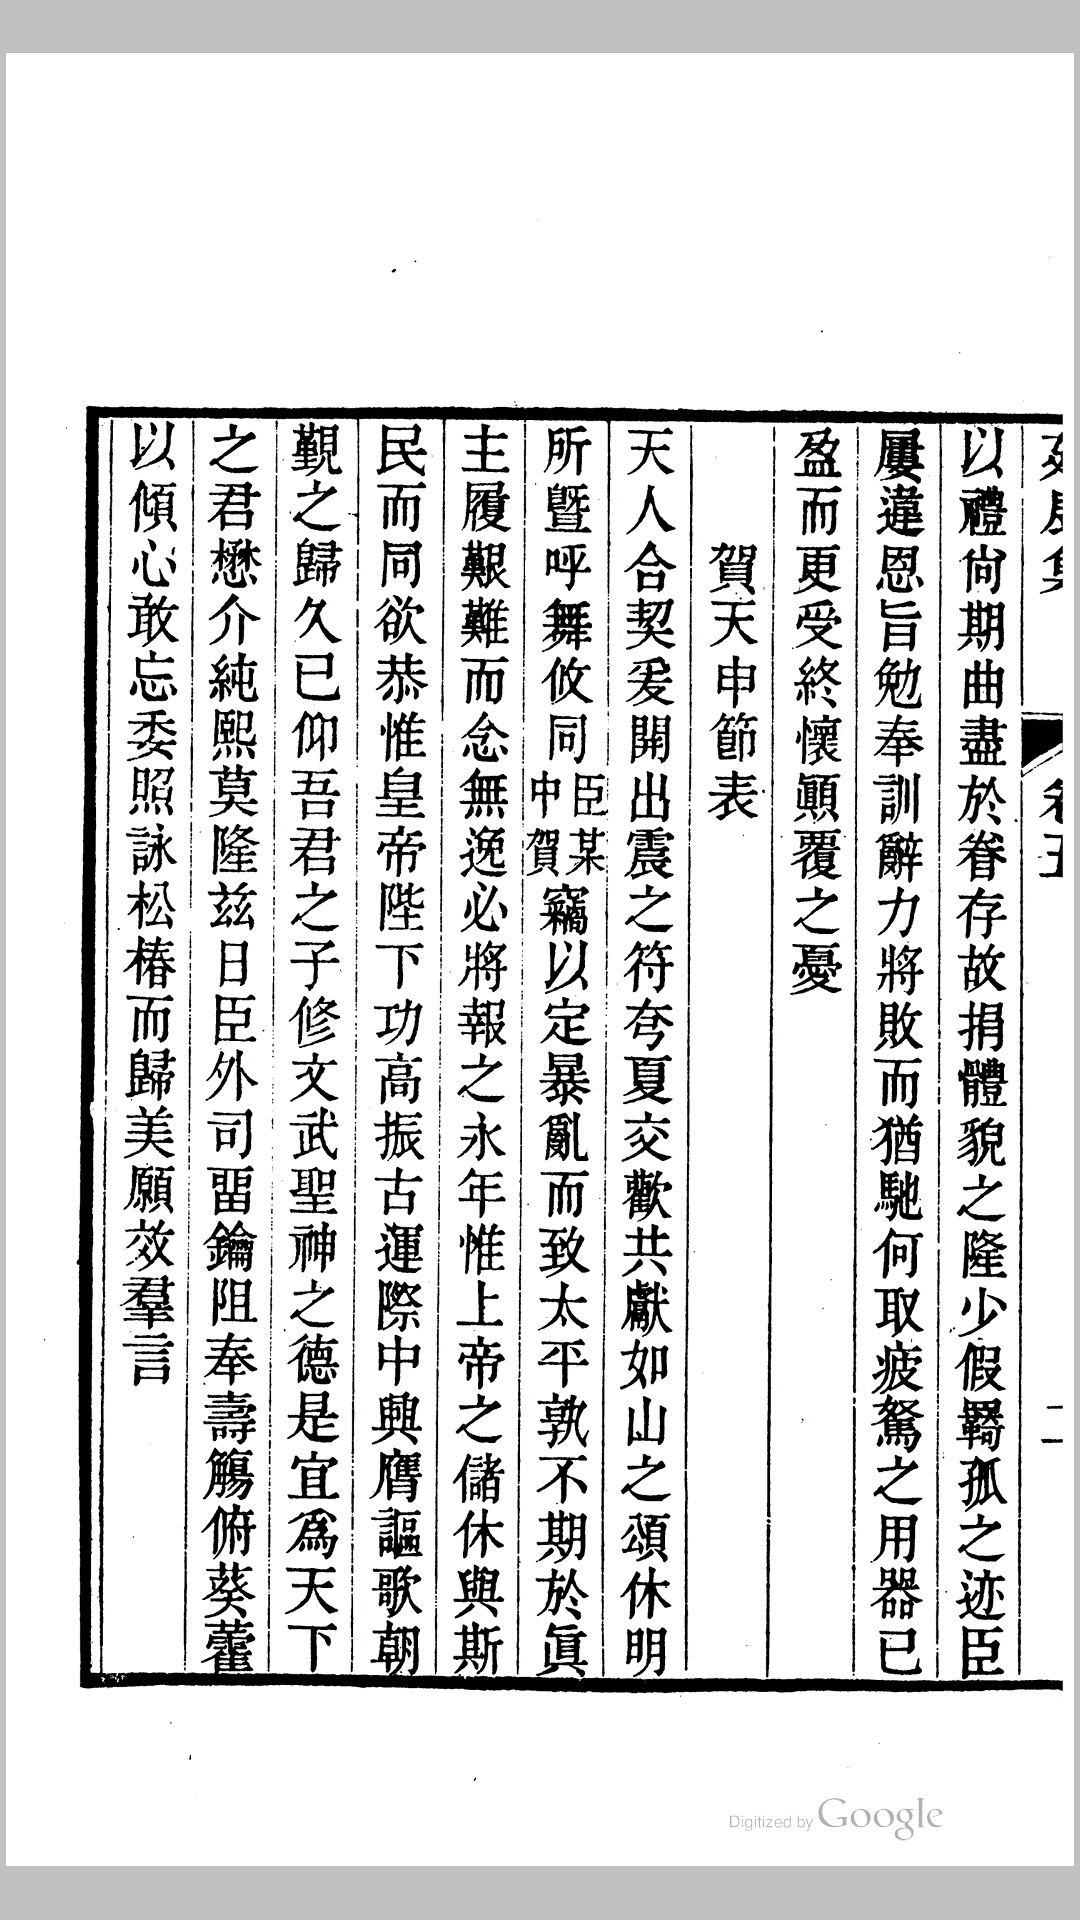 卷五
二
以禮尙期曲盡於眷存故捐體貌之隆少假羇孤之迹臣
屢違恩旨勉奉訓辭力將敗而猶馳何取疲駑之用器已
盈而更受終懷顚覆之憂
賀天申節表
天人合契爰開出震之符夸夏交歡共獻如山之頌休明
所曁呼舞攸同臣某中賀竊以定暴亂而致太平孰不期於眞
主履艱難而念無逸必將報之永年惟上帝之儲休與斯
民而同欲恭惟皇帝陛下功高振古運際中興膺謳歌朝
覲之歸久已仰吾君之子修文武聖神之德是宜爲天下
之君懋介純熙莫隆兹日臣外司畱鑰阻奉壽觴俯葵藿
以傾心敢忘委照詠松椿而歸美願效羣言
Digitized by Google